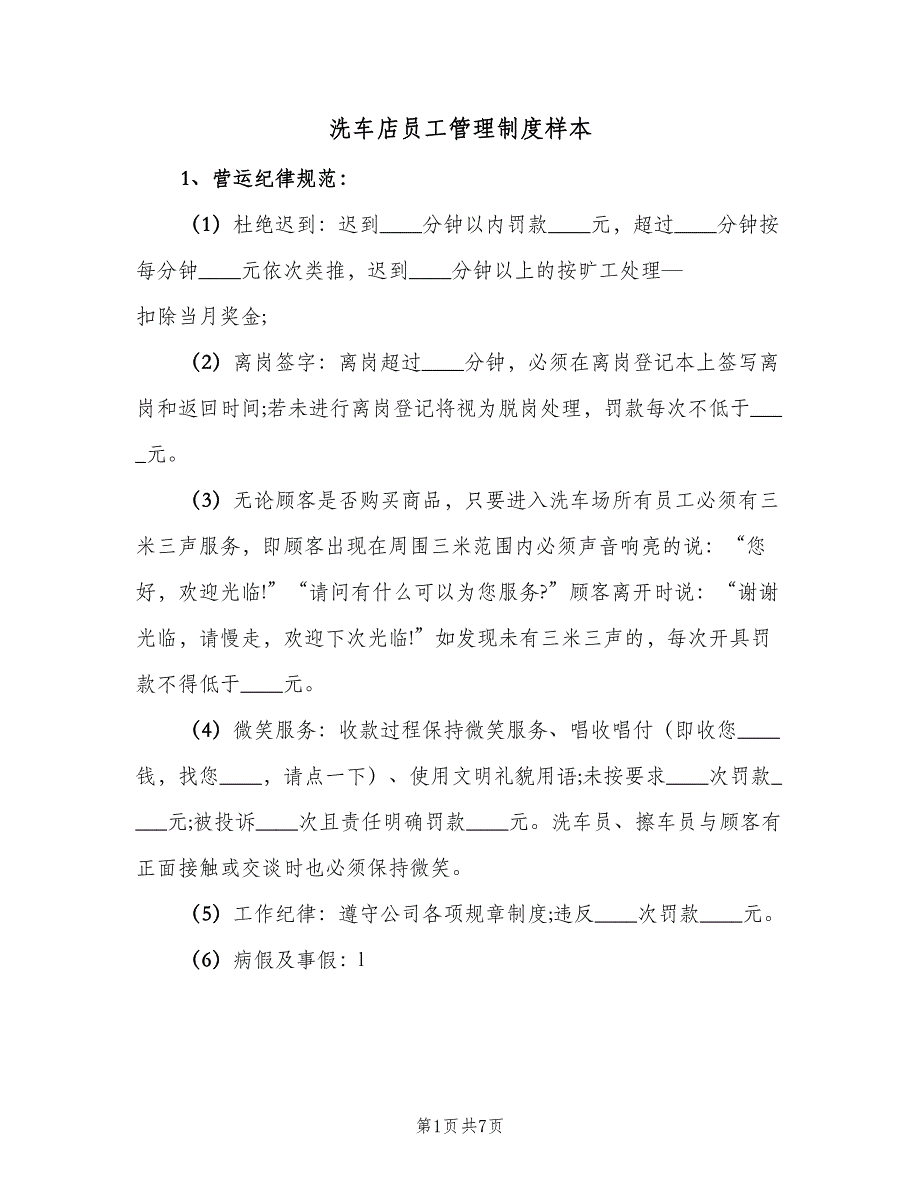 洗车店员工管理制度样本
1、营运纪律规范：
（1）杜绝迟到：迟到____分钟以内罚款____元，超过____分钟按
每分钟____元依次类推，迟到____分钟以上的按旷工处理—
扣除当月奖金;
（2）离岗签字：离岗超过____分钟，必须在离岗登记本上签写离
岗和返回时间;若未进行离岗登记将视为脱岗处理，罚款每次不低于___
_元。
（3）无论顾客是否购买商品，只要进入洗车场所有员工必须有三
米三声服务，即顾客出现在周围三米范围内必须声音响亮的说：“您
好，欢迎光临!”“请问有什么可以为您服务?”顾客离开时说：“谢谢
光临，请慢走，欢迎下次光临!”如发现未有三米三声的，每次开具罚
款不得低于____元。
（4）微笑服务：收款过程保持微笑服务、唱收唱付（即收您____
钱，找您____，请点一下）、使用文明礼貌用语;未按要求____次罚款_
___元;被投诉____次且责任明确罚款____元。洗车员、擦车员与顾客有
正面接触或交谈时也必须保持微笑。
（5）工作纪律：遵守公司各项规章制度;违反____次罚款____元。
（6）病假及事假：l
第1页 共7页